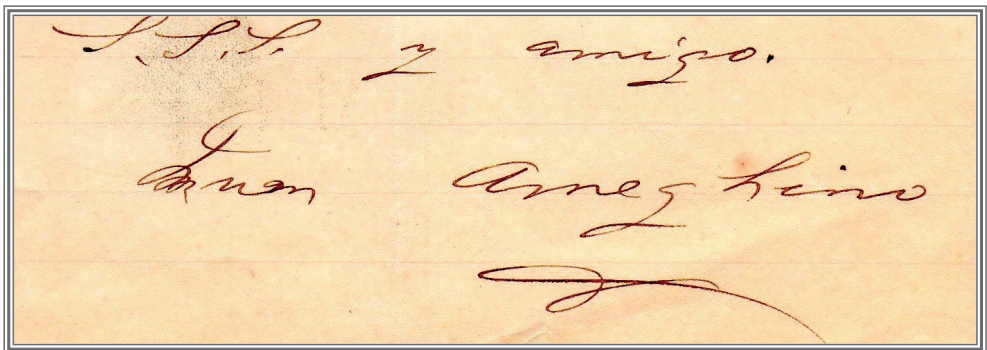 S.S.S. y amigo.
Juan Ameghino